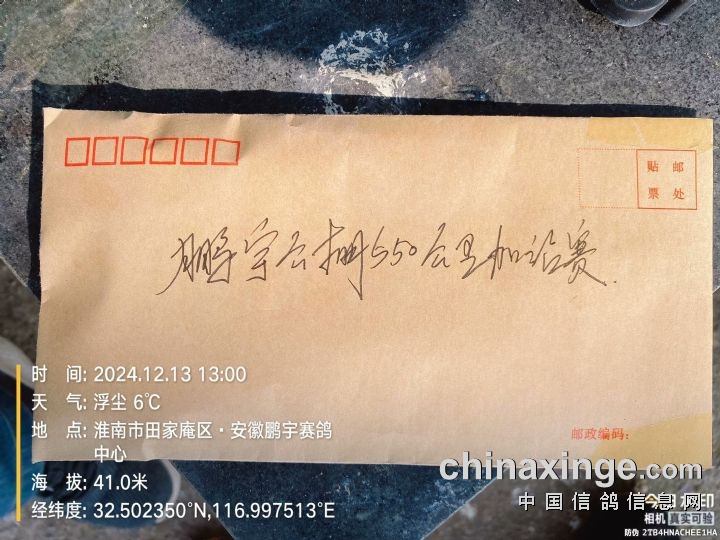 贴 邮
票 处
鹏宇公棚550公里加站赛.
邮政编码:
时 间: 2024.12.13 13:00
天 气: 浮尘 6℃
地 点: 淮南市田家庵区·安徽鹏宇赛鸽
中心
海 拔: 41.0米
经纬度: 32.502350°N,116.997513°E
chinaxinge.com
中国信鸽信息网
今日水印
相机 真实可验
防伪 2TB4HNACHEE1HA